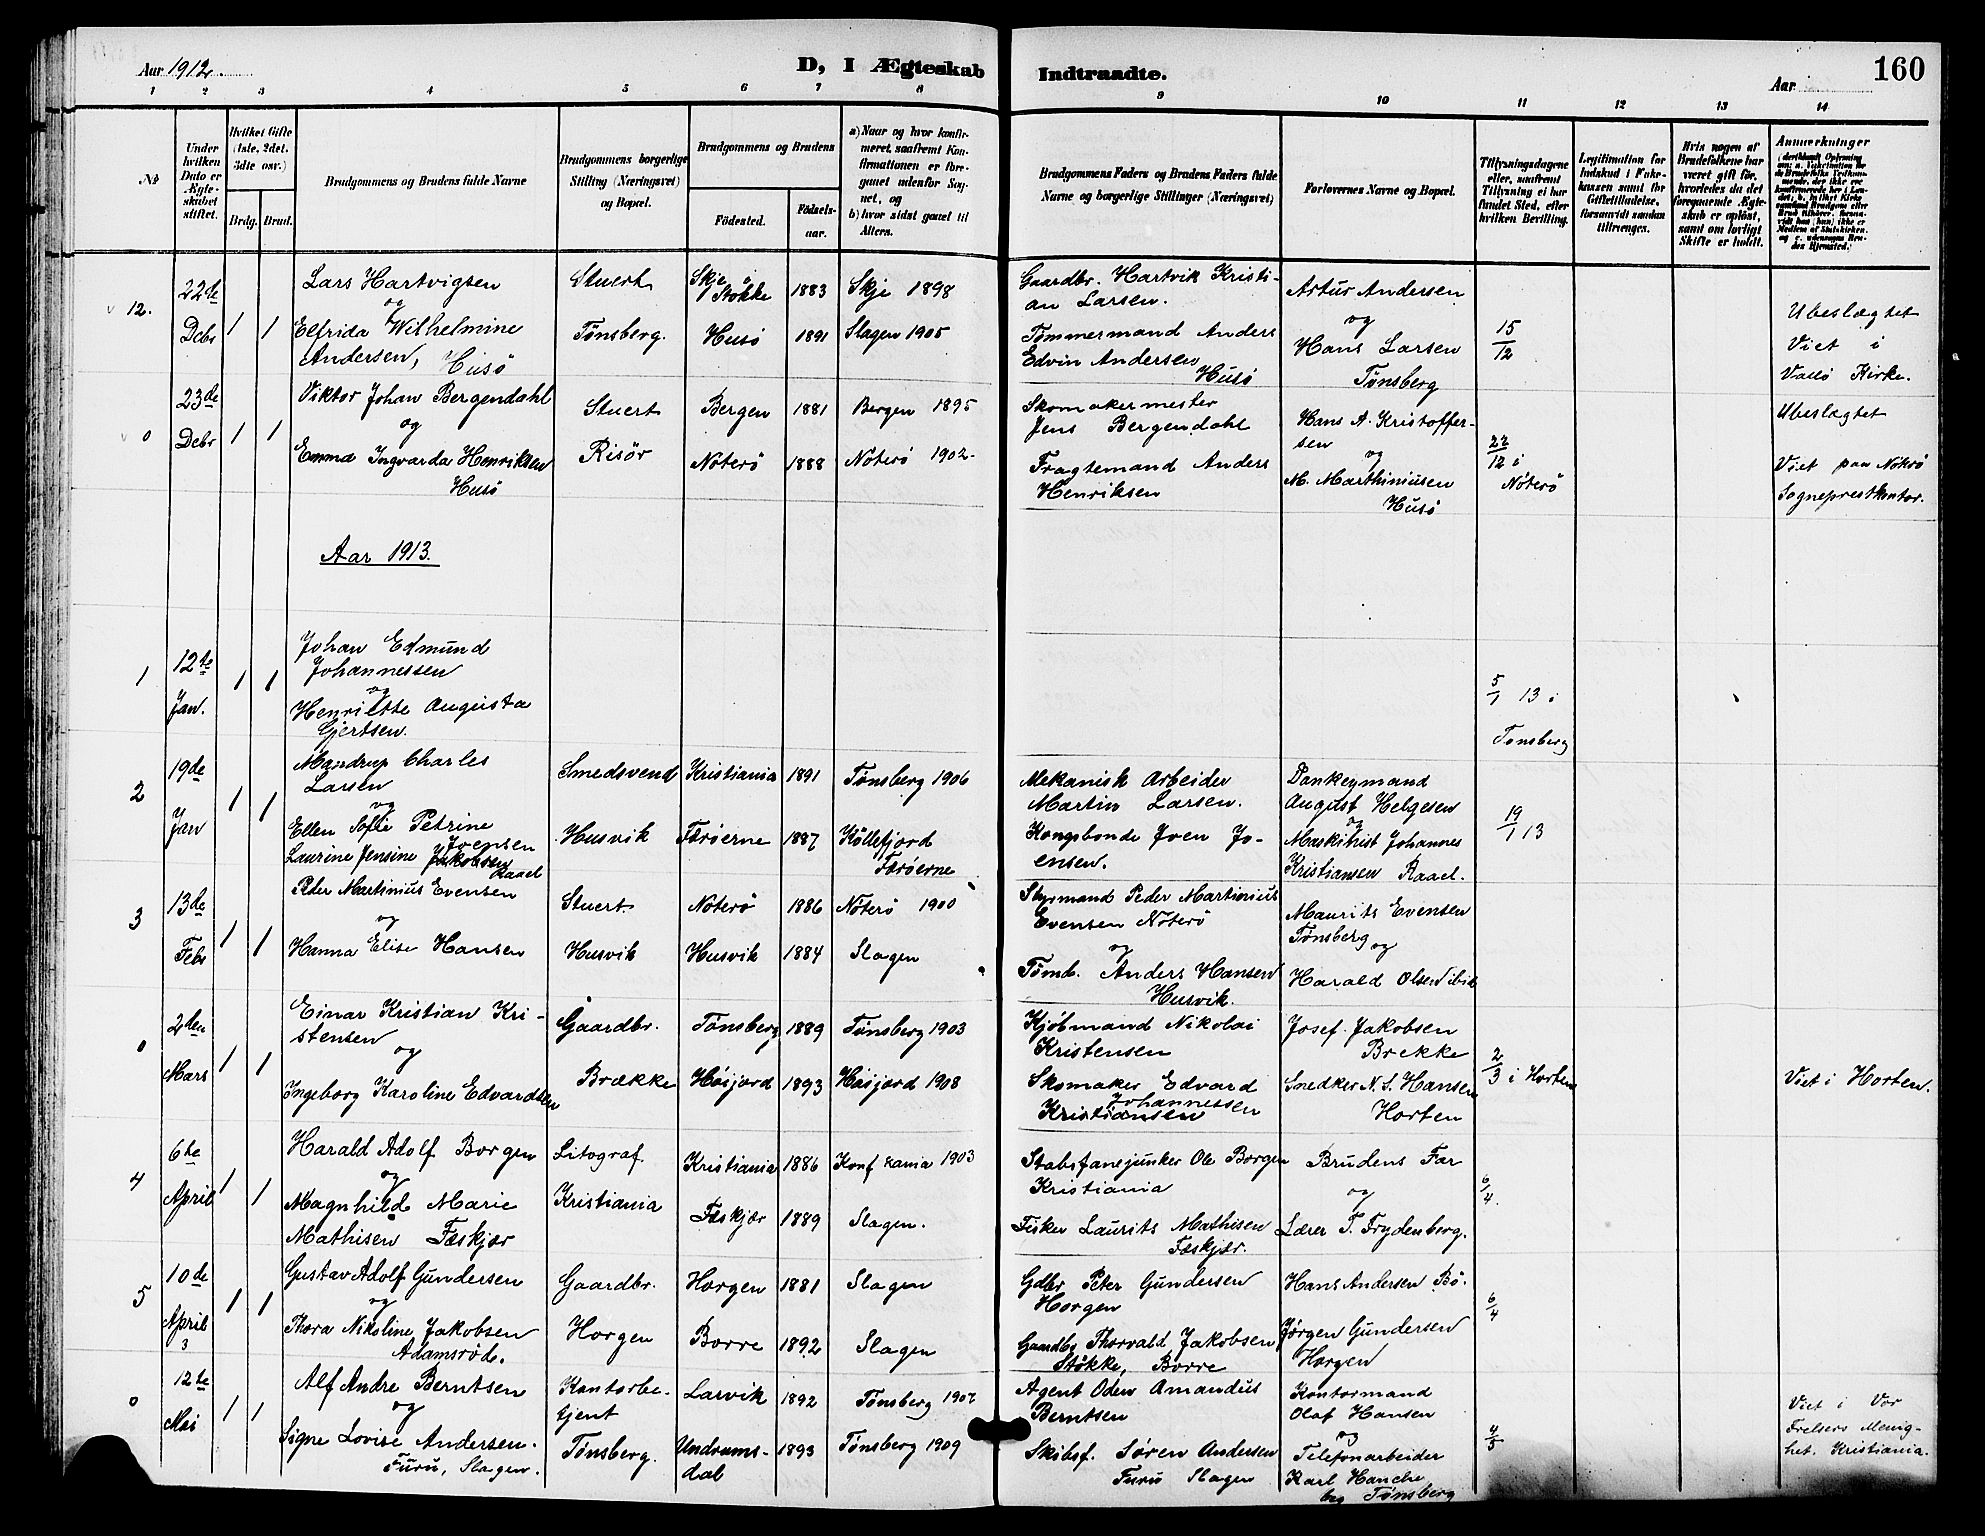 Aar 1912.
D, I Ægteskab Indtraadte.
Aar
160
1 2 3 4 5 6 7 8 9 10 11 12 13 14
№
Under hvilken Dato er Ægteskabet stiftet.
Hvilket Gifte (1ste, 2det, 3dte osv.)
Brdg. Brud.
Brudgommens og Brudens fulde Navne
Brudgommens borgerlige Stilling (Næringsvei) og Bopæl.
Brudgommens og Brudens
Fødested.
Fødselsaar.
a) Naar og hvor konfirmeret, saafremt Konfirmationen er foregaaet udenfor Sognet, og
b) hvor sidst gaaet til Alters.
Brudgommens Faders og Brudens Faders fulde Navne og borgerlige Stillinger (Næringsvei)
Forlovernes Navne og Bopæl.
Tillysningsdagene eller, saafremt Tillysning ei har fundet Sted, efter hvilken Bevilling.
Legitimation for Indskud i Enkekassen samt for Giftetilladelse, forsaavidt saadan tiltrænges.
Hvis nogen af Brudefolkene har været gift før, hvorledes da det foregaaende Ægteskab er opløst, samt om lovligt Skifte er holdt.
Anmærkninger
12.
22de Debr
1 1
Lars Hartvigsen
og
Elfrida Wilhelmine
Andersen, Husö
Stuert
Tønsberg.
Skje, Stokke 1883 Skje 1898
Husö 1891 Slagen 1905
Gaardbr. Hartvik Kristi-
an Larsen.
Tømmermand Anders
Edvin Andersen
Husö
Artur Andersen
og
Hans Larsen
Tønsberg
15/12
Ubeslægtet
Viet i
Vallö Kirke.
0
23de Debr
1 1
Viktor Johan Bergendahl
og
Emma Ingvarda Henriksen
Husö
Stuert
Risör
Bergen 1881 Bergen 1895
Nöterö 1888 Nöterö 1902
Skomakermester
Jens Bergendahl
Fragtemand Anders
Henriksen
Hans A. Kristoffer-
sen
og
M. Marthiniusen
Husö
22/12 i
Nöterö
Ubeslægtet
Viet paa Nöterö
Sogneprestkontor.
Aar 1913.
1
12te Jan.
1 1
Johan Edmund
Johannessen
og
Henriette Augusta
Gjertsen.
5/1 13 i
Tønsberg
2
19de Jan
1 1
Mandrup Charles
Larsen
og
Ellen Sofie Petrine
Joensen
Laurine Jensine Jakobsen
Raael
Smedsvend
Husvik
Kristiania 1891 Tønsberg 1906
Færöerne 1887 Kollefjord
Færöerne
Mekanisk Arbeider
Martin Larsen.
Kongsbonde Joen Jo-
ensen.
Dankeymand
August Helgesen
og
Maskinist Johannes
Kristiansen Raael.
19/1 13
3
13de Febr
1 1
Peder Martinius Evensen
og
Hanna Elise Hansen
Stuert
Husvik
Nöterö 1886 Nöterö 1900
Husvik 1884 Slagen
Styrmand Peder Martinius
Evensen Nöterö
og
Tømd. Anders Hansen
Husvik.
Maurits Evensen
Tønsberg
og
Harald Olsen ibid
0
2den Mars
1 1
Einar Kristian Kri-
stensen
og
Ingeborg Karoline Edvardsen
Gaardbr.
Brække
Tønsberg 1889 Tønsberg 1903
Höijord 1893 Höijord 1908
Kjöbmand Nikolai
Kristensen
Skomaker Edvard
Johannessen
Kristiansen
Josef Jakobsen
Brekke
Snedker N. S. Hansen
Horten
2/3 i Horten
Viet i Horten.
4
6te April
1 1
Harald Adolf Borgen
og
Magnhild Marie
Mathisen Fæskjær
Litograf
Kristiania
Kristiania 1886 Konf ania 1903
Fæskjær 1889 Slagen.
Stabsfanejunker Ole Borgen
Kristiania
Fisker Laurits Mathisen
Fæskjær.
Brudens Far
og
Lærer T. Frydenberg.
6/4.
5
10de April
3
1 1
Gustav Adolf Gundersen
og
Thora Nikoline Jakobsen
Adamsröd.
Gaardbr.
Horgen
Horgen 1881 Slagen
Borre 1892 Slagen
Gdbr Peter Gundersen
Horgen
Gaardbr Thorvald Jakobsen
Stökke, Borre
Hans Andersen Bö.
Jørgen Gundersen
Horgen
6/4
0
12te Mai
1 1
Alf Andre Berntsen
og
Signe Lovise Andersen.
Furu, Slagen.
Kontorbe-
tjent
Tønsberg.
Larvik 1892 Tønsberg 1907
Undrums-
dal 1893 Tønsberg 1909
Agent Oden Amandus
Berntsen
Skibsf. Søren Andersen
Furu Slagen
Kontormand
Olaf Hansen
og
Telefonarbeider
Karl Hanche
Tønsberg
4/5
Viet i Vor
Frelsers Menig-
het, Kristiania.